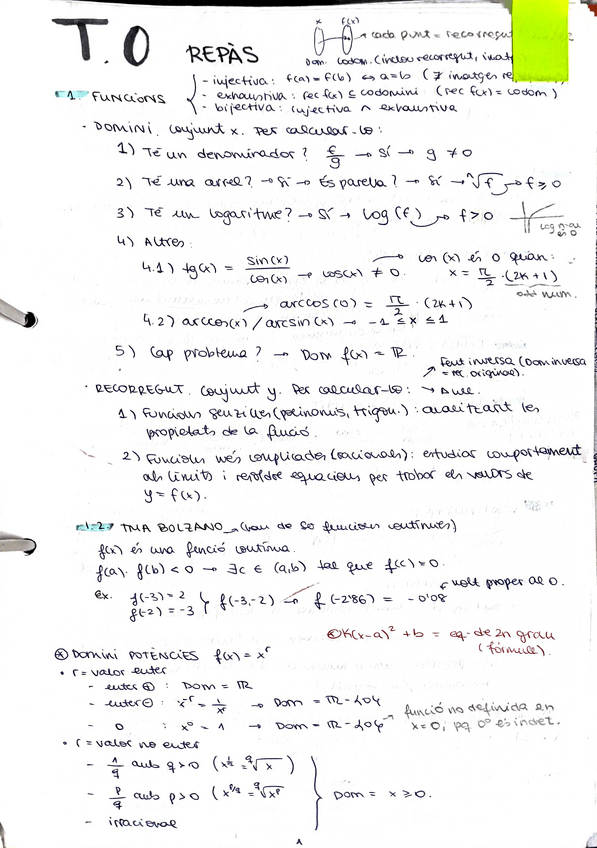 T.0 REPÀS
x f(x)
→ cada punt = recorregut
Dom. codom. (inclou recorregut, imatge
1. FUNCIONS
- injectiva: f(a) = f(b) ↔ a=b (≠ imatges
- exhaustiva: rec f(x) ⊆ codomini (rec f(x) = codom)
- bijectiva: injectiva ∧ exhaustiva
· DOMINI. Conjunt x. Per calcular-lo:
1) Té un denominador? f/g → sí → g ≠ 0
2) Té una arrel? → sí → És parella? → sí → ⁿ√f → f ≥ 0
3) Té un logaritme? → sí → log(f) → f > 0
log
és 0
4) Altres:
4.1) tg(x) = sin(x)/cos(x) → cos(x) ≠ 0. cos(x) és 0 quan:
x = π/2 · (2k+1)
odd num.
→ arccos(0) = π/2 · (2k+1)
4.2) arccos(x) / arcsin(x) → -1 ≤ x ≤ 1
5) Cap problema? → Dom f(x) = ℝ.
Fent inversa (Dom inversa
= rec. original).
· RECORREGUT. Conjunt y. Per calcular-lo:
1) Funcions senzilles (polinomis, trigon.): analitzant les
propietats de la funció.
2) Funcions més complicades (racionals): estudiar comportament
als límits i resoldre equacions per trobar els valors de
y = f(x).
1.2. TMA BOLZANO → (han de ser funcions contínues)
f(x) és una funció contínua.
f(a) · f(b) < 0 → ∃c ∈ (a,b) tal que f(c) = 0.
molt proper al 0.
ex. f(-3) = 2
f(-2) = -3 } f(-3,-2) → f(-2'86) = -0'08
K(x-a)² + b = eq. de 2n grau
(fórmula).
⊛ DOMINI POTÈNCIES f(x) = xʳ
· r = valor enter
- enter ⊕ : Dom = ℝ
- enter ⊖ : x⁻ʳ = 1/xʳ → Dom = ℝ - {0}
- 0 : x⁰ = 1 → Dom = ℝ - {0} → funció no definida en
x=0, pq 0⁰ és indet.
· r = valor no enter
- 1/q amb q>0 (x^1/q = ᑫ√x)
- p/q amb p>0 (x^p/q = ᑫ√xᵖ) } Dom = x ≥ 0.
- irracional
1